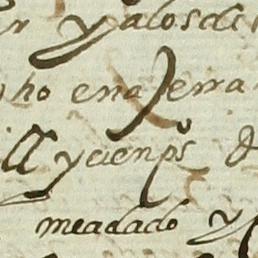 r y a los di
ho en a serra
ll y cien ps d
meadado y